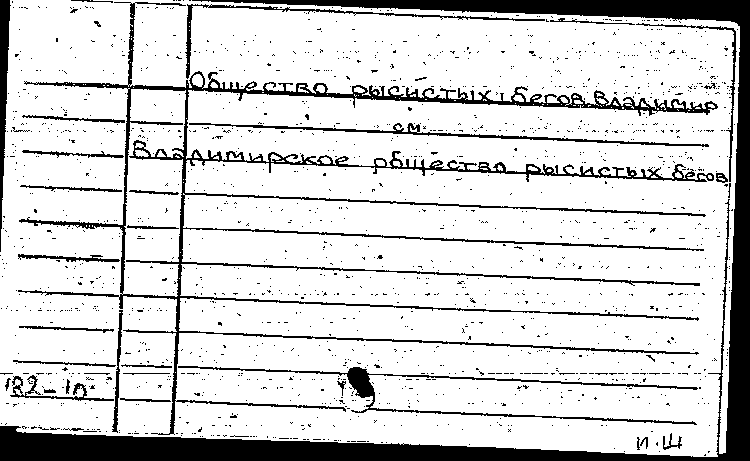 Общество рысистых бегов Владимир
см.
Владимирское общество рысистых бегов
182-10
И.Ш